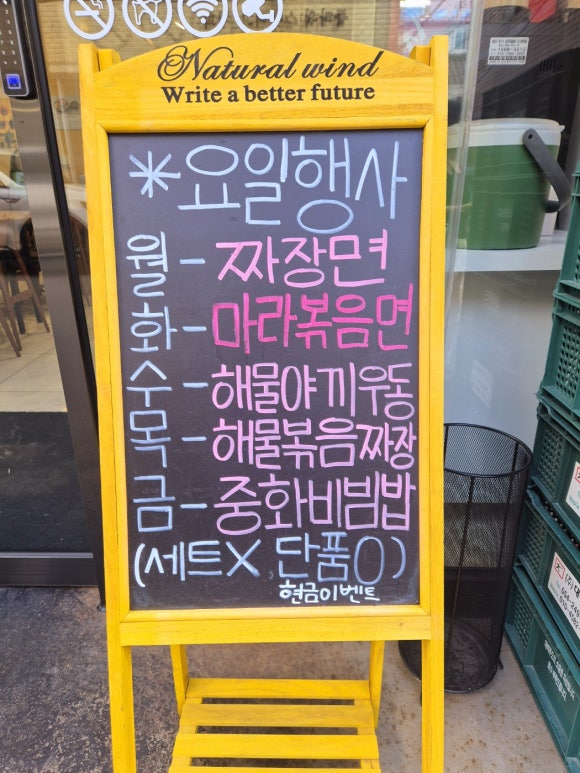 Natural wind
Write a better future
*요일행사
월 - 짜장면
화 - 마라볶음면
수 - 해물야끼우동
목 - 해물볶음짜장
금 - 중화비빔밥
(세트X, 단품O)
현금이벤트